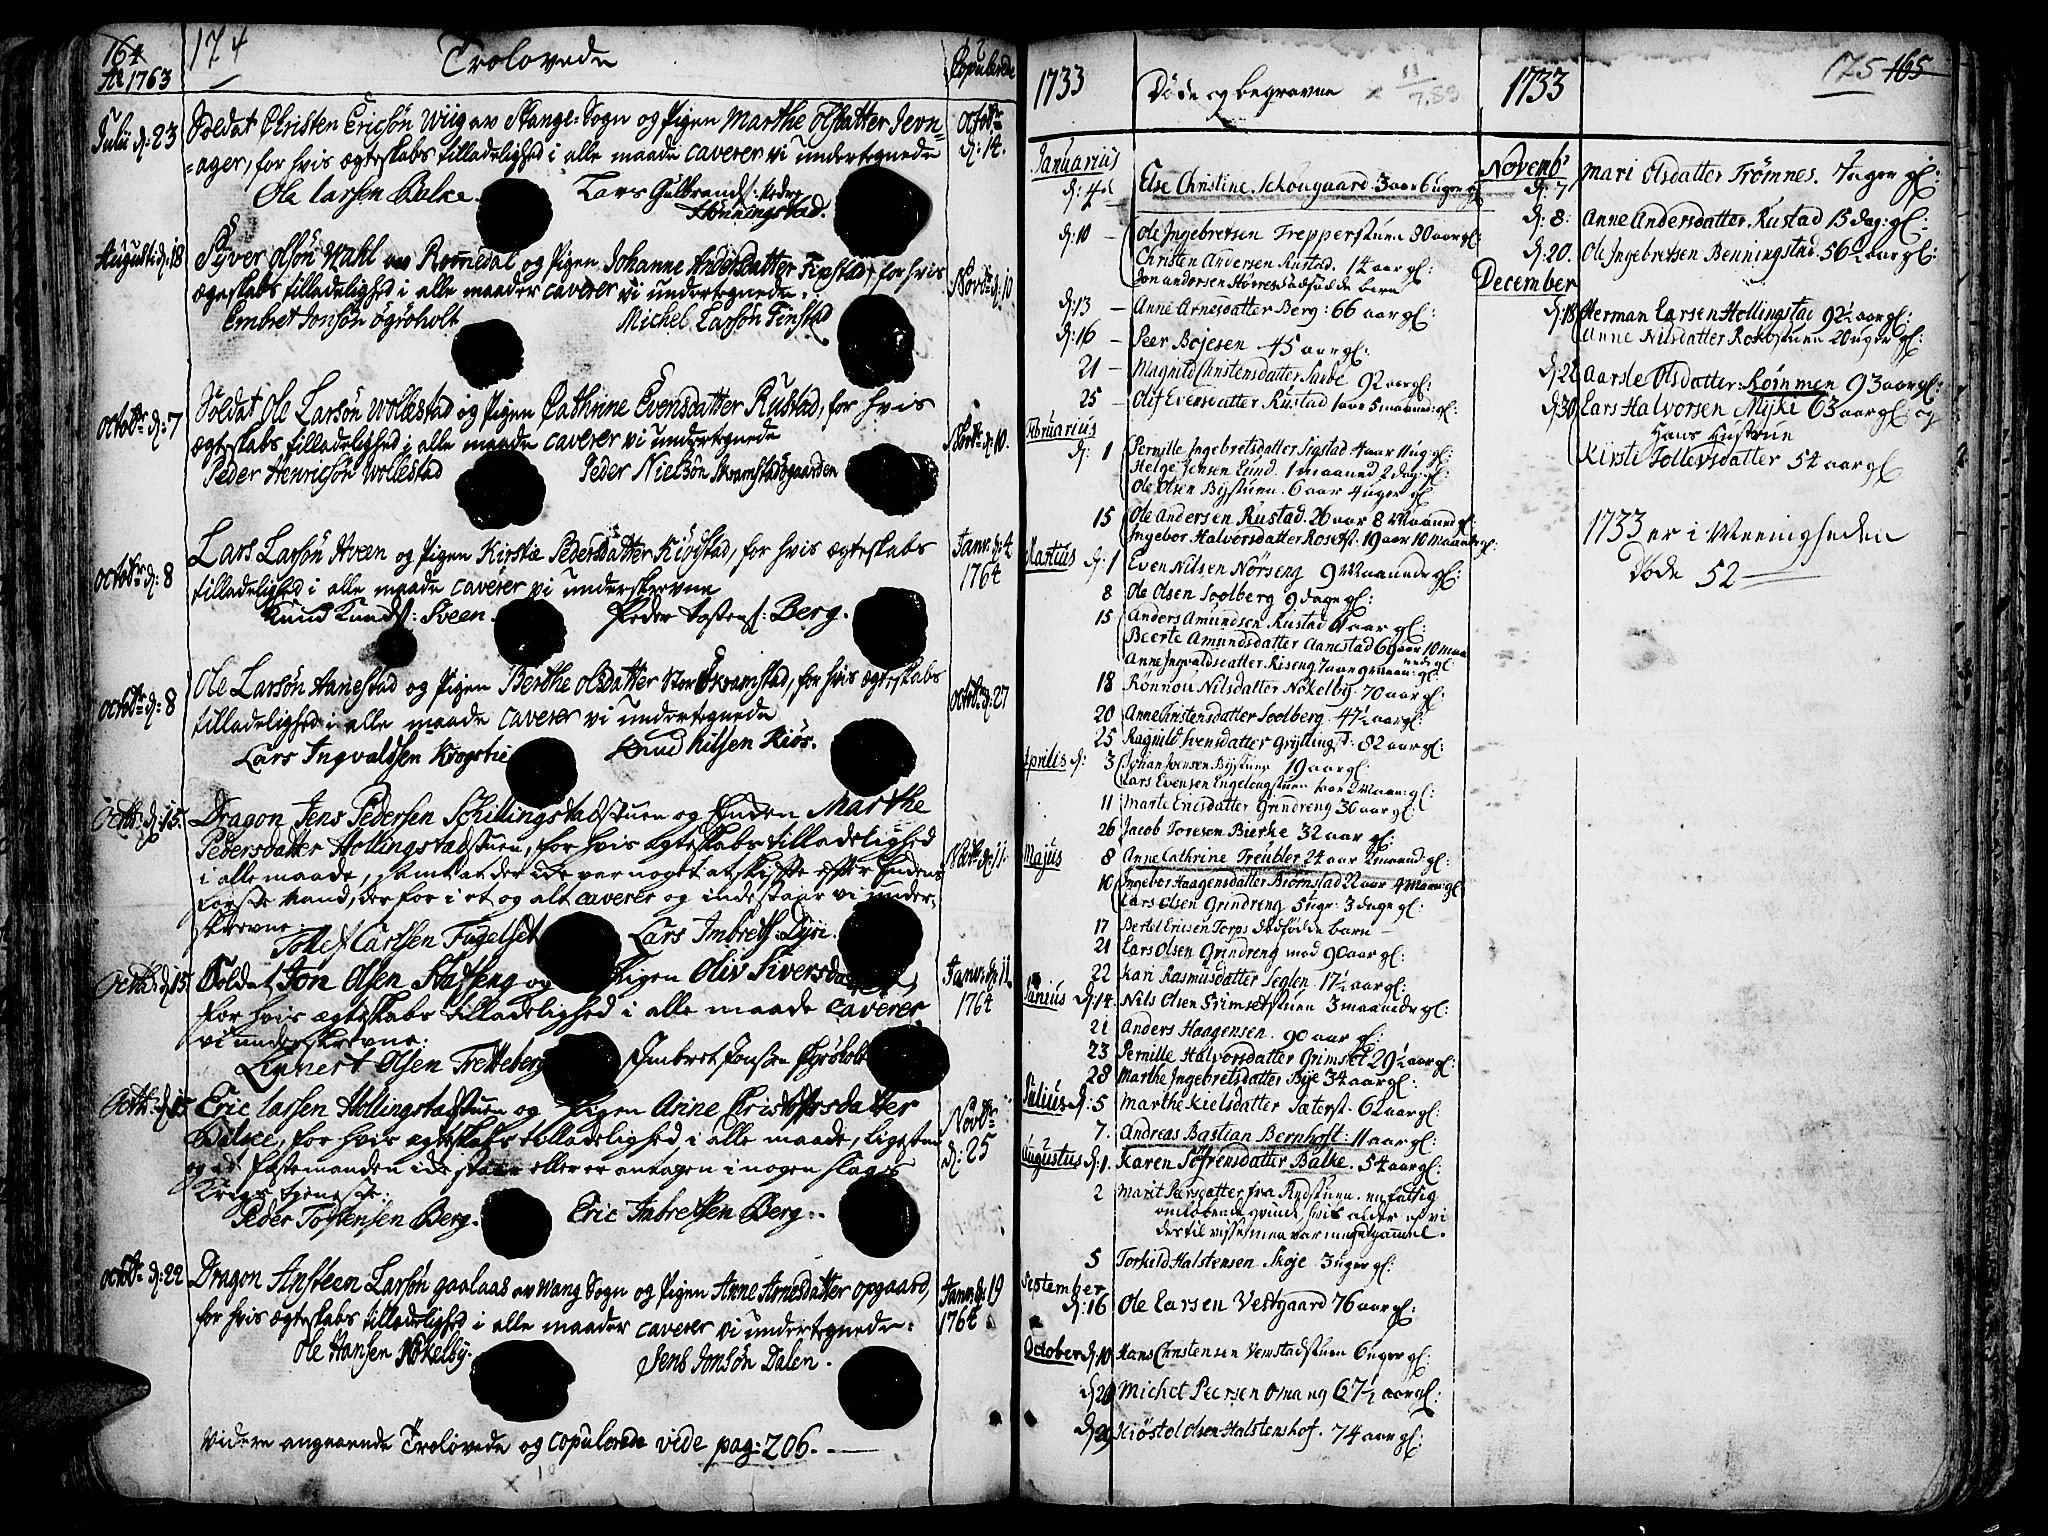 164 174 Trolovede Copulerede
Ao 1763
Julii d: 23 Soldat Christen Ericsön Wiig av Stange-Sogn og Pigen Marthe Olsdatter Jevn= Octobr: d: 14.
=ager, for hvis ægteskabs tilladelighed i alle maade caverer vi undertegnede
Ole Larsen Balke. Lars Gulbrands: Nedre
Hönningstad.
Augusti d: 18 Syver Olsön Wahl av Rommedal og Pigen Johanne Andersdatter Finstad, for hvis Novbr: d: 10
ægteskabs tilladelighed i alle maader caverer vi undertegnede.
Embret Jonsön Ögröholt Michel Larsön Finstad
Octobr: d: 7 Soldat Ole Larsön Wollestad og Pigen Cathrine Evensdatter Rustad, for hvis Novbr: d: 10.
ægteskabs tilladelighed i alle maade caverer vi undertegnede
Peder Henricsön Wollestad Peder Nielsön Skramstadögaarden
Octobr: d: 8 Lars Larsön Hveen og Pigen Kirstie Pedersdatter Kiörstad, for hvis ægteskabs Janv: d: 4
tilladelighed i alle maade caverer vi underskrevne 1764
Knud Knuds: Sveen. Peder Tostens: Berg.
Octobr: d: 8 Ole Larsön Hanestad og Pigen Berthe Olsdatter Stor Skramstad, for hvis ægteskabs Octob: d: 27
tilladelighed i alle maade caverer vi undertegnede
Lars Ingvaldsen Krogstie Knud Nilsen Kiös.
Octbr: d: 15. Dragon Jens Pedersen Skillingstadstuen og Enken Marthe
Pedersdatter Hollingstadstuen, for hvis ægteskabs tilladelighed Novbr: d: 11.
i alle maade, samt at der ike var noget at skifte efter Enkens
første Mand, derfor i et og alt caverer og indestaar vi under-
skrevne.
Tollef Carlsen Fugelset Lars Imbrets: Dyri.
Octb: d: 15. Soldat Jon Olsen Stafseng og Pigen Oliv Siversdatter, Janv: d: 11.
for hvis ægteskabs tilladelighed i alle maade caverer 1764
vi underskrevne:
Lennert Olsen Tretteberg Imbret Jonsen
Octb: d: 15 Eric Larsen Hollingstadstuen og Pigen Anne Christophersdatter Novbr:
Balsee, for hvis ægteskabs tilladelighed, i alle maade, ligesaa d: 25
og at Festemanden ike staar eller er antagen i nogen slags
Krigs tjeneste:
Peder Tostensen Berg. Eric Imbretsen Berg.
Octobr: d: 22 Dragon Ansteen Larsön Gaalaas av Wang Sogn og Pigen Anne Arnesdatter Opgaard, Janv: d: 19
for hvis ægteskabs tilladelighed i alle maader caverer vi undertegnede. 1764
Ole Hansen Nökelby. Jens Jonsön Dalen.
Videre angaaende Trolovede og copulerede vide pag: 206.
175 165
1733 Döde og begravne 1733
Januarius
d: 4 Else Christine Schougaard 3 aar 6 uger gl
d: 10 Ole Ingebretsen Trepperstuen 30 aar gl:
Christen Andersen Rustad. 14 aar gl:
Jon andersen dödfödde barn
d: 13 Anne Arnesdatter Berg: 66 aar gl:
d: 16 Peer Bojesen 45 aar gl:
21 Magnild Christensdatter Lunde 92 aar gl:
25 Olif Evensdatter Rustad 1 aar 5 maaned: gl:
Februarius
d: 1 Pernille Ingebretsdatter Sigstad 4 aar 11 ug: gl:
Helge Jensen Lund. 1 maaned 2 dag: gl:
Ole Olsen Bystuen. 6 aar 4 uger gl
15 Ole Andersen Rustad. 26 aar 8 Maaned gl:
Ingebor Halvorsdatter Rosets: 19 aar 10 maaneder gl:
Martius d: 1 Even Nilsen Nörseng 9 Maanede gl:
8 Ole Olsen Soolberg 9 dage gl:
15 Anders Amundsen Rustad aar gl:
Beerte Amundsdatter Aanestad 69 aar 10 maa
nede gl:
Anne Ingvaldsdatter Riseng 7 aar 9 maan: gl:
18 Rönnou Nilsdatter Nökelby. 70 aar gl:
20 Anne Christensdatter Soolberg. 47½ aar gl:
25 Ragnild Svensdatter Gryllings: 82 aar gl:
Aprilis d: 3 Johan Svensen Bystuen 19 aar gl:
Lars Evensen Engelaugstuen 1 aar 2 Maan: gl:
11 Marte Ericsdatter Grindreng 30 aar gl:
26 Jacob Toresen Bierke 32 aar gl:
Majus 8 Anne Cathrine Treubler 24 aar 2 maaned: gl:
10 Ingebor Haagensdatter Biörnstad 22 aar 4 maan: gl:
Lars Olsen Grindreng 5 ugr: 3 dage gl:
17 Bertel Ericsen Torps dödfödde barn
21 Lars Olsen Grindreng mod 90 aar gl:
22 Kari Rasmusdatter Seglen 17½ aar gl:
Junius d: 14. Nils Olsen Grimsetstuen 3 maaneder gl:
21 Anders Haagensen. 90 aar gl:
23 Pernille Halvorsdatter Grimset 29½ aar gl:
28 Marthe Ingebretsdatter Bye 34 aar gl:
Julius d: 5 Marthe Kielsdatter Sæterst. 62 aar gl:
7. Andreas Bastian Bernhoft: 11 aar gl:
Augustus d: 1. Karen Söfrensdatter Balke. 54 aar gl:
2 Marit Larsdatter fra Rydstuen. en fattig
omløbende qvinde, hvis alder er vi
des til visse men var meget gammel.
5 Torkild Halstensen Skoje. 3 uger gl:
September
d: 16 Ole Larsen Vestgaard 76 aar gl:
October d: 10 Hans Christensen Vemstadstuen 6 uger gl:
d: 20 Michel Peersen Omang 67½ aar gl:
d: 29 Kiöstel Olsen Halstenshof. 74 aar gl:
Novemb:
d: 7 Mari Olsdatter Trömnes. 7 uger gl:
d: 8: Anne Andersdatter Rustad 15 dag: gl:
d: 20. Ole Ingebretsen Benningstad. 56½ aar gl:
December
d: 18 Herman Larsen Hollingstad 92½ aar gl:
Anne Nilsdatter Rokostuen 20 uger gl:
d: 22 Aarsle Olsdatter Rönmen 93 aar gl:
d: 30 Lars Halvorsen Mijke 63 aar gl: og
Hans Hustrue
Kirsti Tollevsdatter 54 aar gl
1733 er i Meenigheden
Döde 52